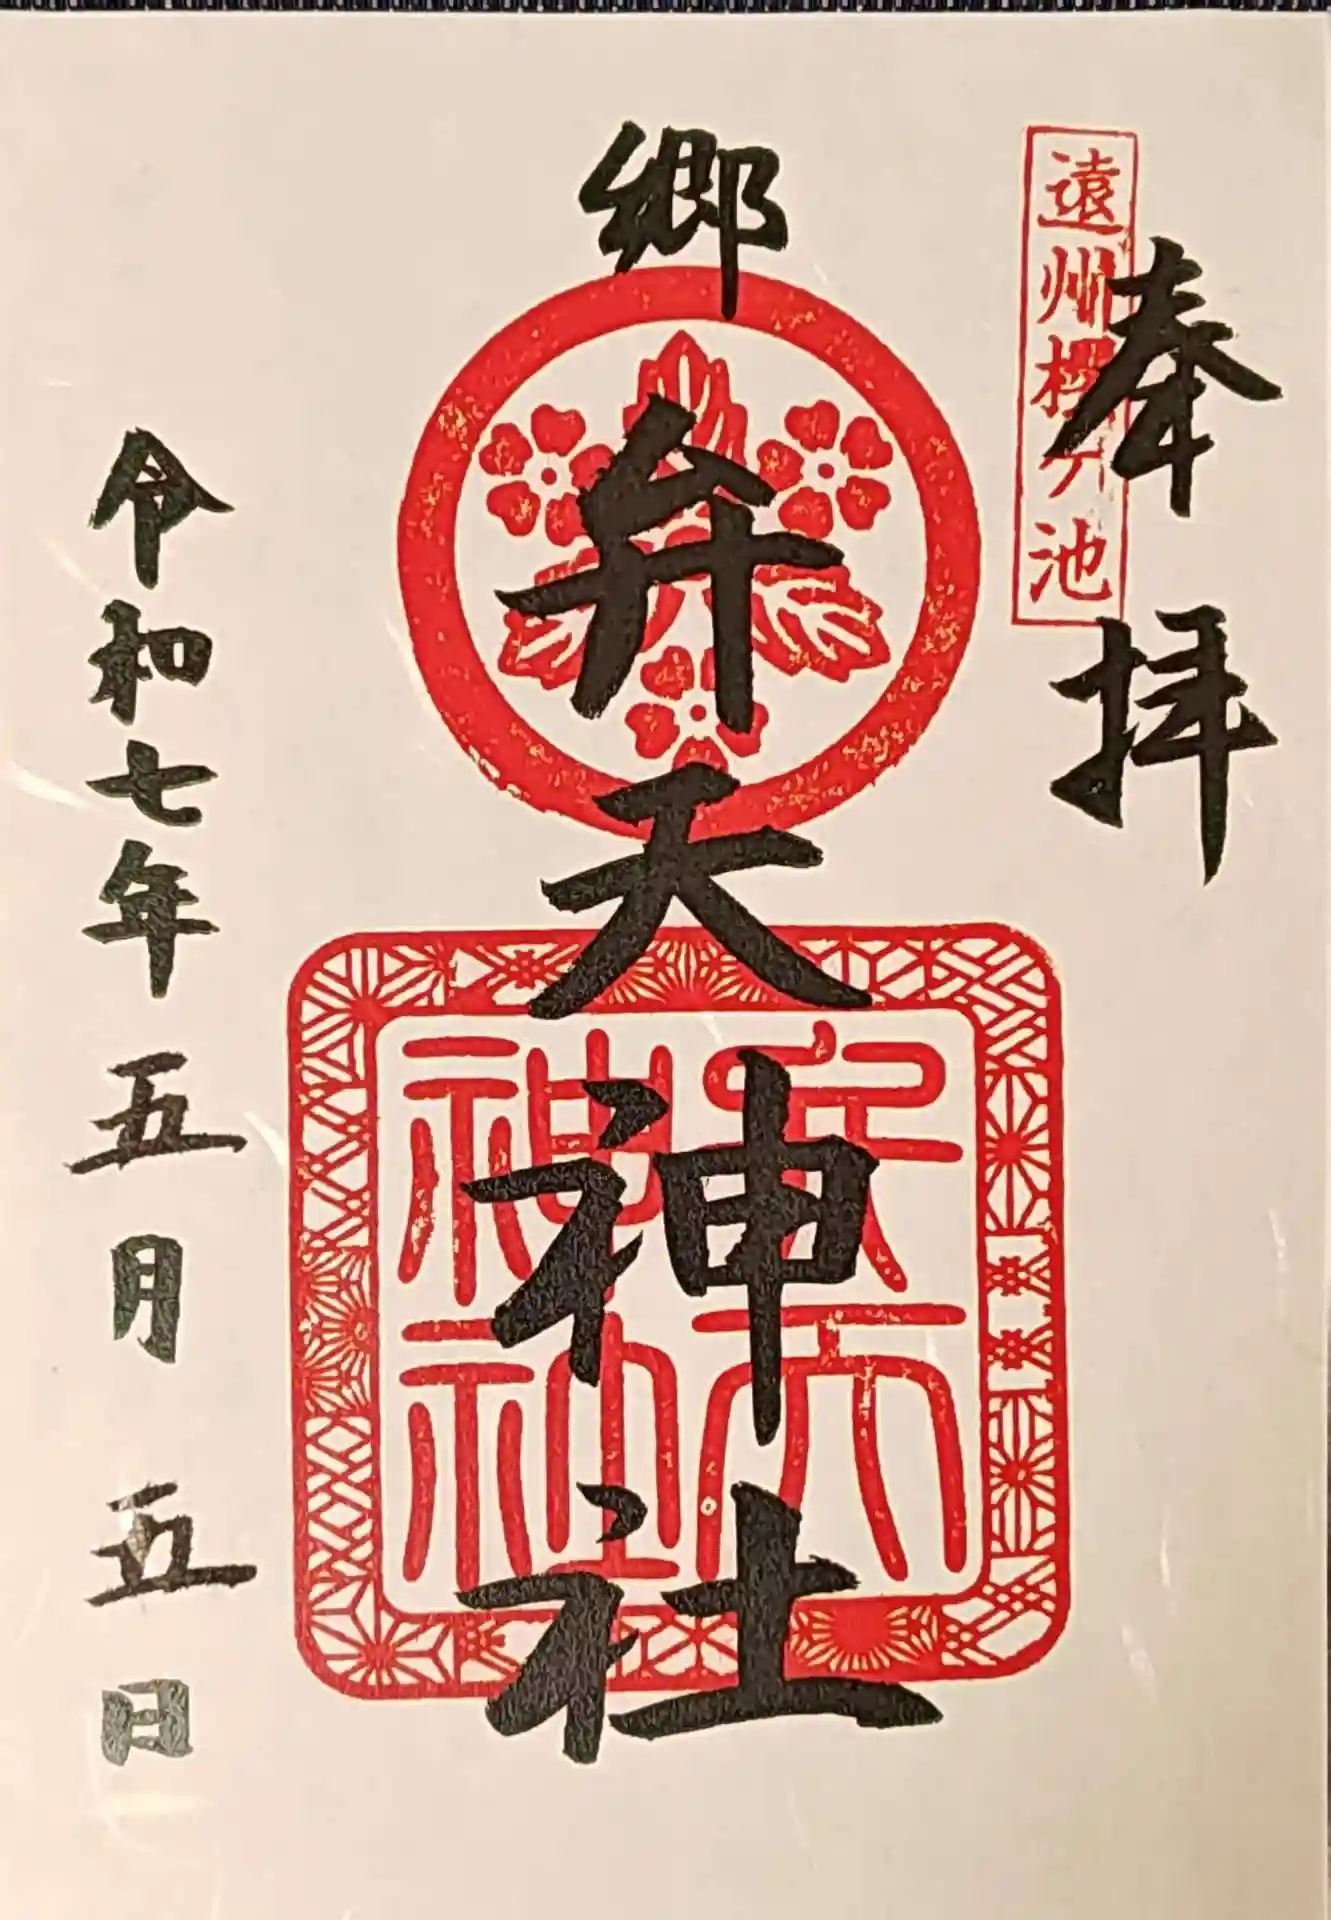 奉拝
遠州 池
郷
弁天神社
弁天
神社
令和七年五月五日